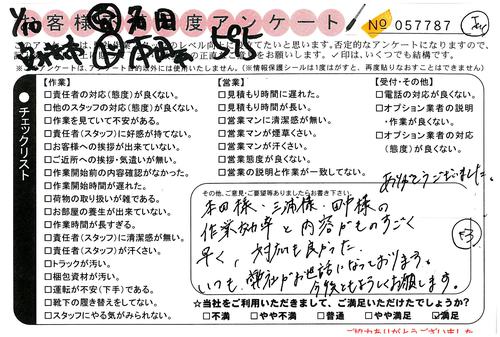 お客様満足度アンケート
No 057787
のアンケートは、
レベル向上に
せていただきたいと思います。否定的なアンケートになりますので、
の正直なご意見をお願いします。✓印は、いくつでも結構です。
595
※アンケートは、アンケート目的以外には使用いたしません。(※情報保護シールは1度はがすと、再度貼りなおすことはできません)
●チェックリスト
【作業】
□責任者の対応(態度)が良くない。
□他のスタッフの対応(態度)が良くない。
□作業を見ていて不安がある。
□責任者(スタッフ)に好感が持てない。
□お客様への挨拶が出来ていない。
□ご近所への挨拶・気遣いが無い。
□作業開始前の内容確認がなかった。
□作業開始時間が遅れた。
□荷物の取り扱いが雑である。
□お部屋の養生が出来ていない。
□作業時間が長すぎる。
□責任者(スタッフ)に清潔感が無い。
□責任者(スタッフ)が汗くさい。
□トラックが汚い。
□梱包資材が汚い。
□運転が不安(下手)である。
□靴下の履き替えをしてない。
□スタッフにやる気がみられない。
【営業】
□見積もり時間に遅れた。
□見積もり時間が長い。
□営業マンに清潔感が無い。
□営業マンが煙草くさい。
□営業マンが汗くさい。
□営業態度が良くない。
□営業の説明と作業が一致してない。
【受付・その他】
□電話の対応が良くない。
□オプション業者の説明
・作業が良くない。
□オプション業者の対応
(態度)が良くない。
ありがとうございました。
その他、ご意見・ご要望等ありましたらお書き下さい。
本田様・三浦様・田中様の
作業効率と内容がものすごく
早く、対応も良かった。
いつも、弊社がお世話になっております。
今後ともよろしくお願します。
☆当社をご利用いただきまして、ご満足いただけたでしょうか?
□不満 □やや不満 □普通 □やや満足 ☑満足
ご協力ありがとうございました